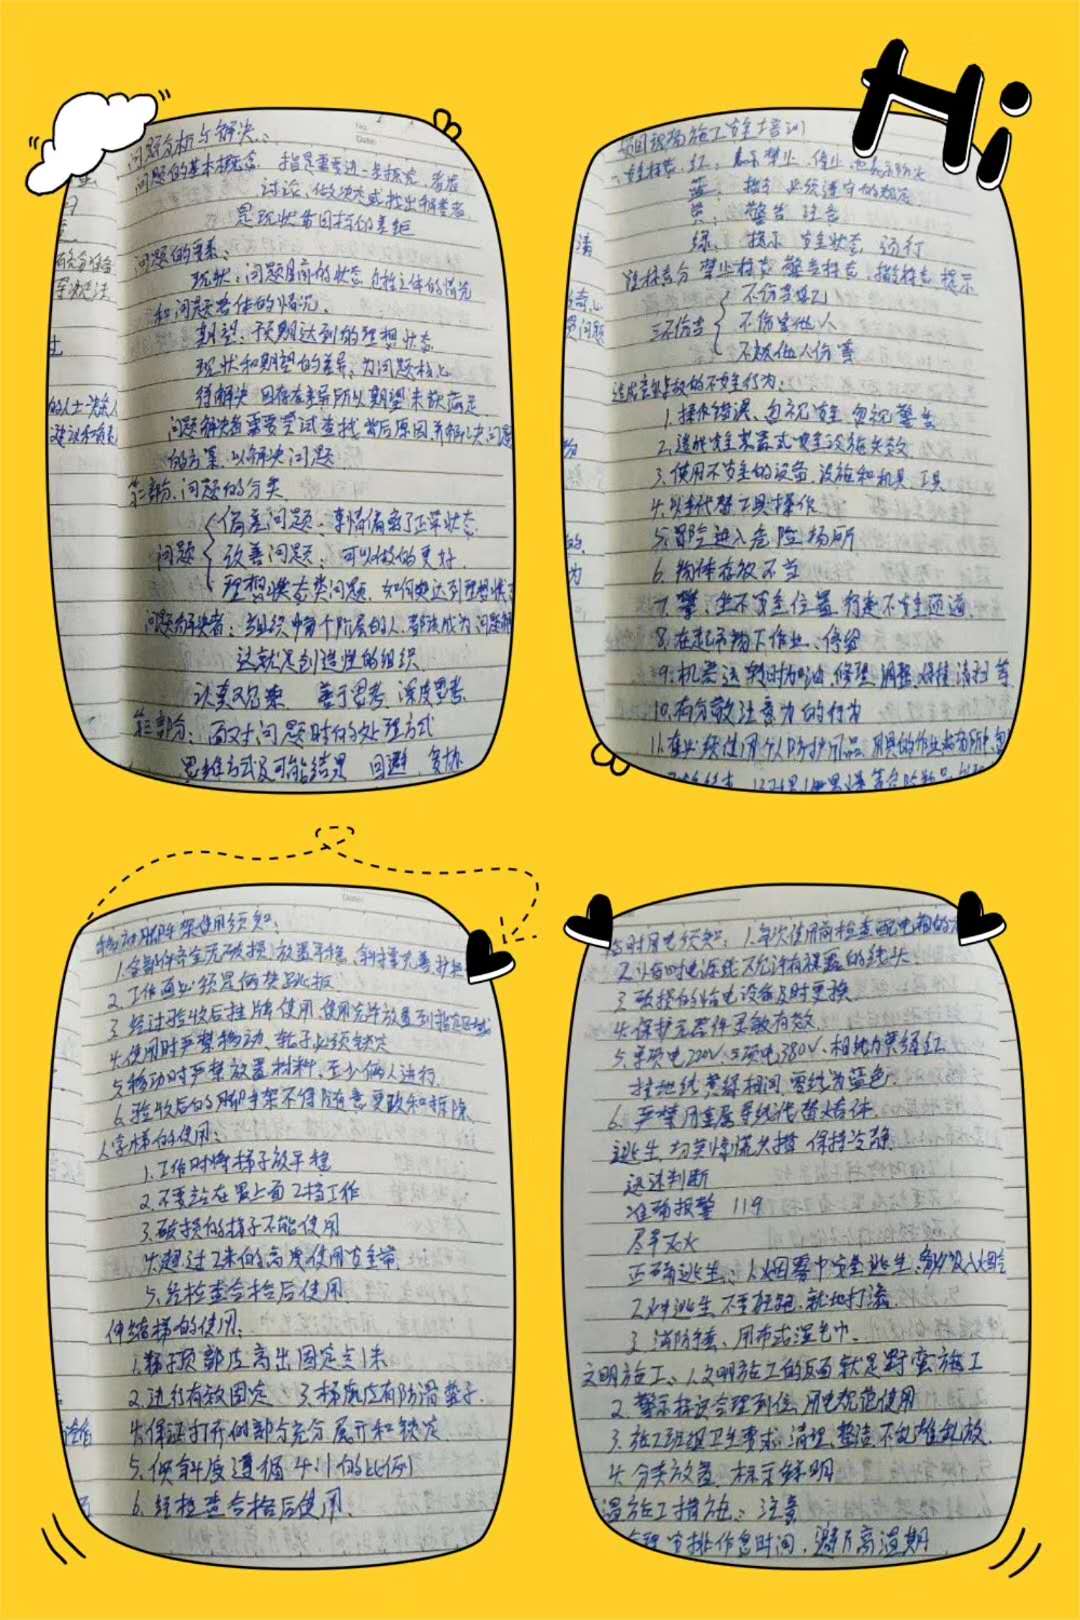 Hi
问题分析与解决:
问题的基本概念: 指是需要进一步探究、考虑
讨论、做决定或找出解答者
是现状与目标的差距
问题的要素:
现状:问题目前的状态 包括主体的情况
和问题客体的情况.
期望:预期达到的理想状态
现状和期望的差异,为问题核心
待解决 因存在差异所以期望未获满足
问题解决者需要尝试查找背后原因,并解决问题
的方案,以解决问题.
第二部份.问题的分类.
偏差问题:事情偏离了正常状态.
问题 改善问题: 可以做的更好.
理想状态类问题. 如何突达到理想状
问题解决者:当组织中每个阶层的人,都能成为问题解
这就是创造性的组织.
认真观察 善于思考. 深度思考.
第三部份: 面对问题时的处理方式
思维方式及可能结果 回避
项目现场施工安全培训
安全标志.红: 表示禁止、停止 也表示防火
蓝: 指令 必须遵守的规定
黄: 警告 注意
绿: 提示 安全状态 通行
安全标志分 禁止标志 警告标志. 指令标志. 提示
不伤害自己
三不伤害 不伤害他人
不被他人伤害
造成安全事故的不安全行为:
1.操作错误、忽视安全.忽视警告
2.造成安全装置或安全设施失效
3.使用不安全的设备.设施和机具、工具
4.以手代替工具操作
5.冒险进入危险场所
6.物体存放不当
7.攀、坐不安全位置.行走不安全通道.
8.在起吊物下作业、停留
9.机器运转时加油、修理、调整、焊接、清扫等
10.有分散注意力的行为
11.在必须使用个人防护用品.用具的作业场所中,忽
移动脚手架使用须知:
1.全部件齐全无破损.放置平稳.斜撑完善.
2.工作面必须是满焚跳板.
3.经过验收后挂牌使用.使用完毕放置到指定区域
4.使用时严禁移动、轮子必须锁定
5.移动时严禁放置材料.至少俩人进行.
6.验收后的脚手架不得随意更改和拆除.
人字梯的使用:
1.工作时将梯子放平稳
2.不要站在最上面2档工作
3.破损的梯子不能使用
4.超过2米的高度使用安全带.
5.经检查合格后使用.
伸缩梯的使用:
1.梯子顶部应高出固定点1米
2.进行有效固定 3.梯底应有防滑垫子.
4.保证打开的部分充分展开和锁定
5.倾斜度遵循4:1的比例
6.经检查合格后使用.
临时用电须知: 1.每次使用前检查配电箱的
2.临时电源线不允许有裸露的线头
3.破损的临电设备及时更换.
4.保护元器件灵敏有效
5.单项电220V.三项电380V、相线为黄绿红
接地线黄绿相间.零线为蓝色.
6.严禁用金属导线代替熔体.
逃生.切莫惊慌失措 保持冷静.
迅速判断
准确报警 119
尽早灭火
正确逃生: 1.烟雾中安全逃生.
2.火中逃生.不要狂跑.就地打滚.
3.消防手套、用布或湿毛巾.
文明施工: 1.文明施工的反面就是野蛮施工
2.警示标识合理到位.用电规范使用
3.施工班组卫生要求.清理.整洁.不乱堆乱放.
4.分类放置.标示鲜明
高温施工措施: 注意
合理安排作息时间,避开高温期